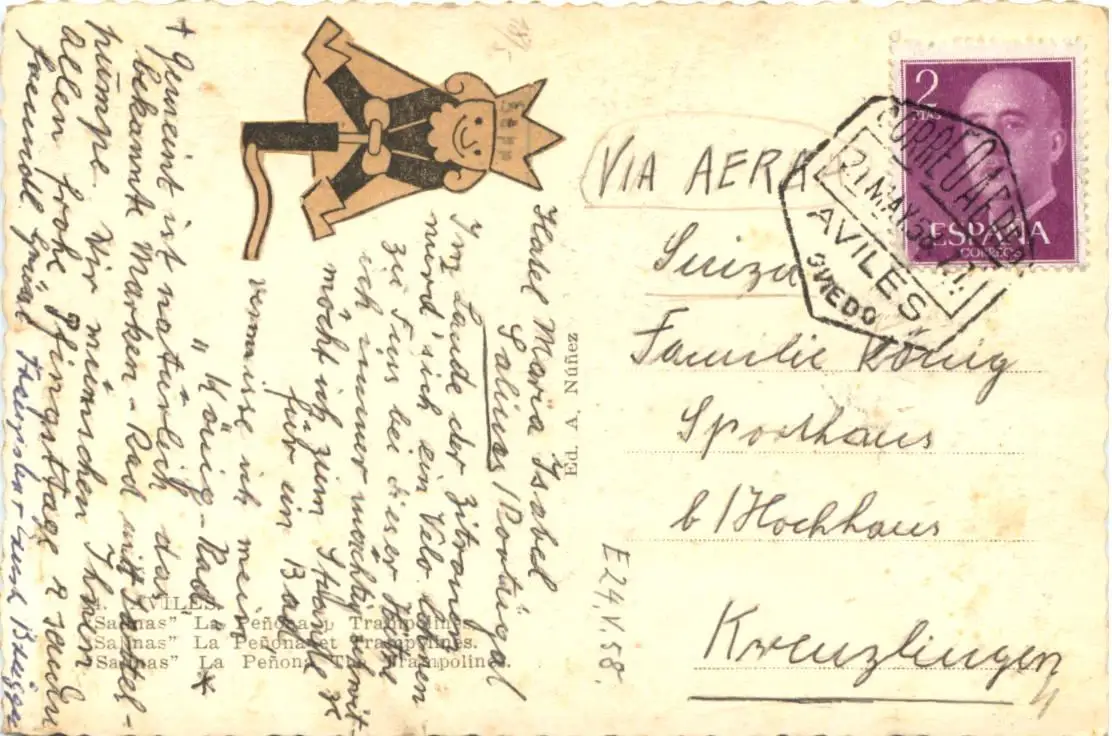 Hotel Maria Isabel
Salinas/Portúgal
Im Lande der Zitronen
würd' sich ein Velo lohnen
zu Fuss bei dieser Hitze
ich immer mächtig schwitze
möcht ich zum Strand
für ein Bad
vermisse ich mein
"König-Rad" *
* Gemeint ist natürlich das
bekannte Marken-Rad mit Sattel-
pümpe. Wir wünschen Ihnen
allen frohe Pfingsttage &
freundl. Grüsse
Ed. A. Núñez
4. AVILÉS.
"Salinas" La Peñona Trampolines.
"Salinas" La Peñona et Trampolines.
"Salinas" La Peñona The Trampolines.
VIA AEREA
Suiza
Familie König
Sporthaus
b/Hochhaus
Kreuzlingen
E 24.V.58.
18/5
2
PTAS
ESPAÑA
CORREOS
CORREO AEREO
21 MAY 58
AVILÉS
OVIEDO